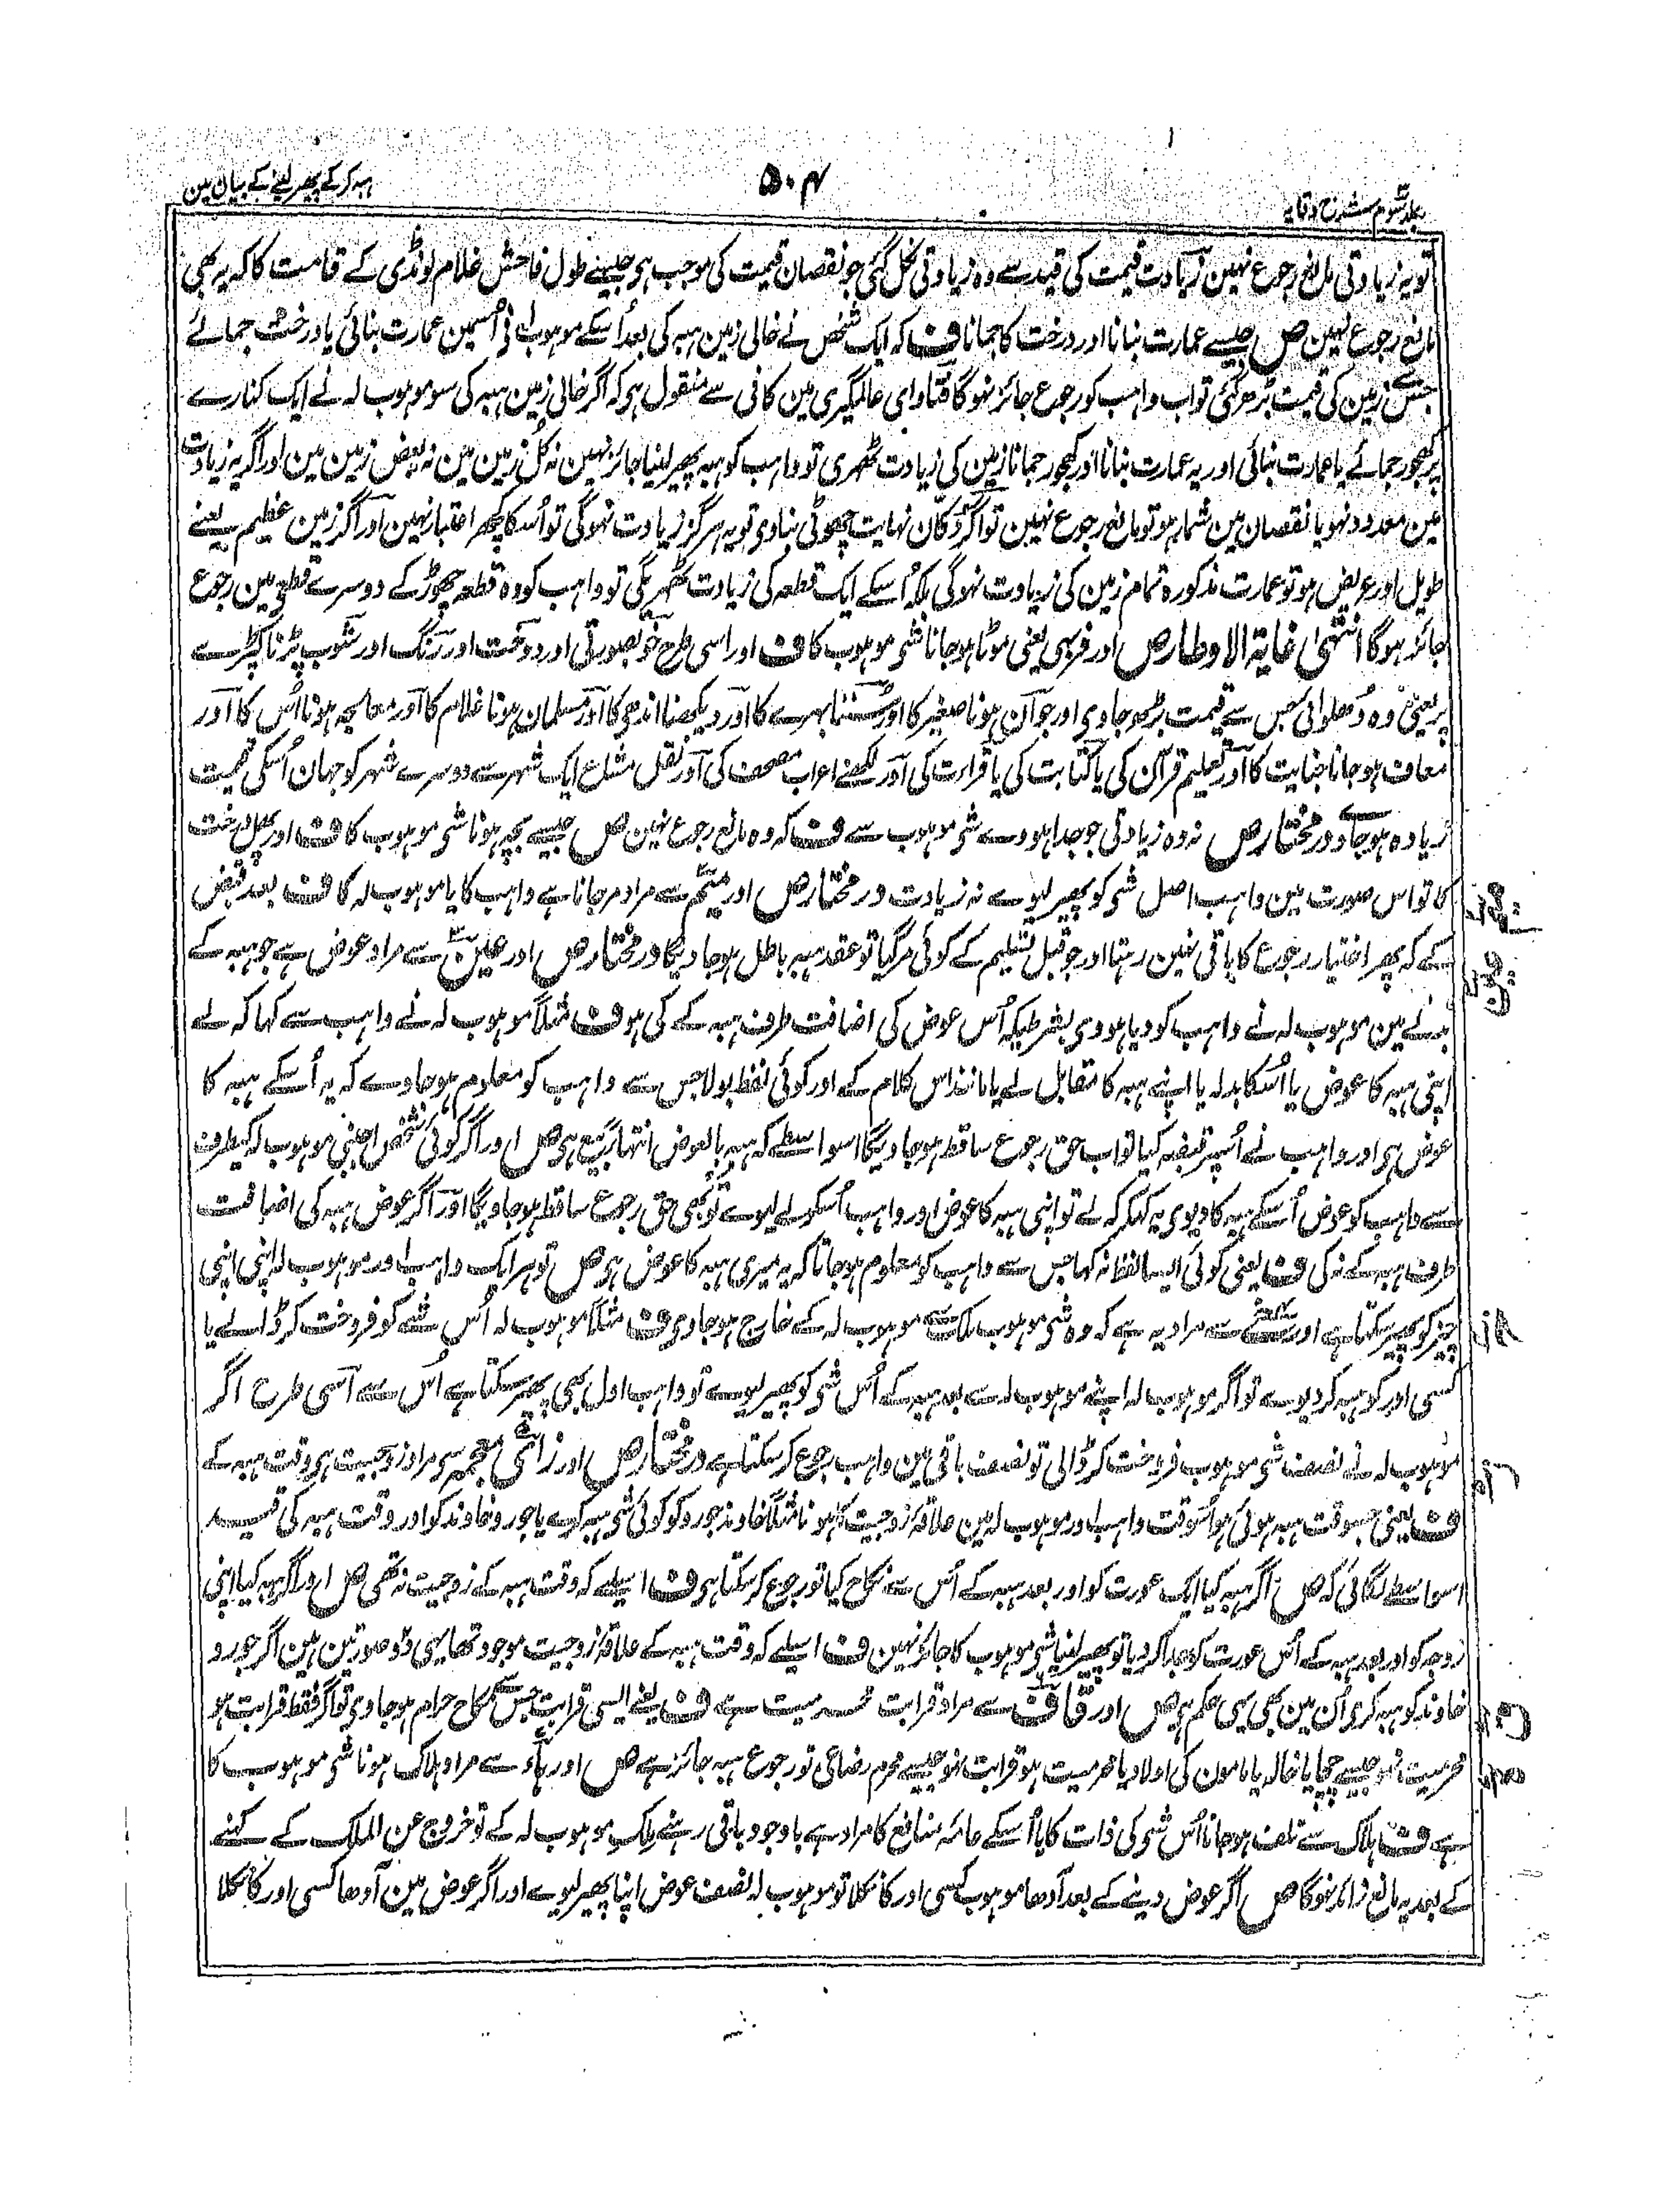 جلد سوم شرح وقایہ
۵۰۴
ہبہ کرکے پھیر لینے کے بیان مین
تو یہ زیادتی مانع رجوع نہین زیادت قیمت کی قید سے وہ زیادتی نکل گئی جو نقصان قیمت کی موجب ہی جیسے طول فاحش غلام لونڈی کے قامت کا کہ یہ بھی
مانع رجوع نہین ص جیسے عمارت بنانا اور درخت کا جمانا ف کہ ایک شخص نے خالی زمین ہبہ کی بعد اُسکے موہوب لہ نی اُسمین عمارت بنائی یا درخت جمائے
جس سے زمین کی قیمت بڑھ گئی تو اب واہب کو رجوع جائز نہوگا فتاوای عالمگیری مین کافی سے منقول ہی کہ اگر خالی زمین ہبہ کی سو موہوب لہ نے ایک کنارے
پر کھجور جمائے یا عمارت بنائی اور یہ عمارت بنانا اور کھجور جمانا زمین کی زیادت ٹھہری تو واہب کو ہبہ پھیر لینا جائز نہین نہ کُل زمین مین نہ بعض زمین مین اور اگر یہ زیادت
مین معدود نہو یا نقصان مین شمار ہو تو مانع رجوع نہین تو اگر دُکان نہایت چھوٹی بناوی تو یہ ہرگز زیادت نہوگی تو اُسکا کچھ اعتبار نہین اور اگر زمین عظیم یعنے
طویل اور عریض ہو تو عمارت مذکورہ تمام زمین کی زیادت نہوگی بلکہ اُسکے ایک قطعہ کی زیادت ٹھہریگی تو واہب کو وہ قطعہ چھوڑ کے دوسرے قطعی مین رجوع
جائز ہوگا انتہیٰ غایۃ الاوطار ص اور فربہی یعنی موٹا ہوجانا شی موہوب کا ف اور اسی طرح خوبصورتی اور دوخت اور رنگ اور شوب پڑنا کپڑے
پر یعنی وہ دُھلوائی جس سے قیمت بڑھ جاوی اور جوان ہونا صغیر کا اور سُننا بہرے کا اور دیکھنا اندھی کا اور مسلمان ہونا غلام کا اور معالجہ ہونا اُس کا اور
معاف ہوجانا جنایت کا اور تعلیم قرآن کی یا کتابت کی یا قراءت کی اور لکھنے اعراب مصحف کی اور نقل متاع ایک شہر سے دوسرے شہر کو جہان اُسکی قیمت
زیادہ ہوجاوے درمختار ص نہ وہ زیادتی جو جدا ہووے شی موہوب سے ف کہ وہ مانع رجوع نہین ص جیسے بچہ ہونا شی موہوب کا ف اور پھل درخت
کا تو اس صورت مین واہب اصل شی کو پھیر لیوے نہ زیادت درمختار ص اور میم سے مراد مرجانا ہے واہب کا یا موہوب لہ کا ف بعد قبض
کے کہ پھر اختیار رجوع کا باقی نہین رہتا اور جو قبل تسلیم کے کوئی مرگیا تو عقد ہبہ باطل ہوجاویگا درمختار ص اور عین سے مراد عوض ہے جو ہبہ کے
بدلے مین موہوب لہ نے واہب کو دیا ہووی بشرطیکہ اُس عوض کی اضافت طرف ہبہ کے کی ہو ف مثلاً موہوب لہ نے واہب سے کہا کہ لے
اپنی ہبہ کا عوض یا اُسکا بدلہ یا اپنے ہبہ کا مقابل لے یا مانند اس کلام کے اور کوئی لفظ بولا جس سے واہب کو معلوم ہوجاوے کہ یہ اُسکے ہبہ کا
عوض ہی اور واہب نے اُسپر قبضہ کیا تو اب حق رجوع ساقط ہوجاویگا اسواسطے کہ ہبہ بالعوض انتہاءً بیع ہی ص اور اگر کوئی شخص اجنبی موہوب لہ کیطرف
سے واہب کو عوض اُسکے ہبہ کا دیوی یہ کہکر کہ لے تو اپنی ہبہ کا عوض اور واہب اُسکو لے لیوے تو بھی حق رجوع ساقط ہوجاویگا اور اگر عوض ہبہ کی اضافت
طرف ہبہ کے نہ کی ف یعنی کوئی ایسا لفظ نہ کہا جس سے واہب کو معلوم ہوجاتا کہ یہ میری ہبہ کا عوض ہی ص تو ہر ایک واہب اور موہوب لہ اپنی اپنی
چیز کو پھیر سکتا ہے اور سے مراد یہ ہے کہ وہ شی موہوب ملک سے موہوب لہ کے خارج ہوجاوی ف مثلاً موہوب لہ اُس شے کو فروخت کرڈالے یا
کسی اور کو ہبہ کر دیوے تو اگر موہوب لہ اپنے موہوب لہ سے بعد ہبہ کے اُس شی کو پھیر لیوے تو واہب اول بھی پھیر سکتا ہے اُس سے اسی طرح اگر
موہوب لہ نے نصف شی موہوب فروخت کرڈالی تو نصف باقی مین واہب رجوع کرسکتا ہے درمختار ص اور زای معجمہ سی مراد زوجیت ہی وقت ہبہ کے
ف یعنی جسوقت ہبہ ہوئی ہو اُسوقت واہب اور موہوب لہ مین علاقہ زوجیت کا ہونا مثلاً خاوند جورو کو کوئی شی ہبہ کرے یا جورو خاوند کو اور وقت ہبہ کی قید
اسواسطے لگائی کہ ص اگر ہبہ کیا ایک عورت کو اور بعد ہبہ کے اُس سے نکاح کیا تو رجوع کرسکتا ہی ف اسلیے کہ وقت ہبہ کے زوجیت نہ تھی ص اور اگر ہبہ کیا اپنی
زوجہ کو اور بعد ہبہ کے اُس عورت کو جدا کردیا تو پھیر لینا شی موہوب کا جائز نہین ف اسلیے کہ وقت ہبہ کے علاقہ زوجیت موجود تھا یہی دو صورتین ہین اگر جورو
خاوند کو ہبہ کری اُن مین بھی یہی حکم ہی ص اور قاف سے مراد قرابت محرمیت ہے ف یعنے ایسی قرابت جس سے نکاح حرام ہوجاوی تو اگر فقط قرابت ہو
محرمیت نہو جیسے چچا یا خالہ یا مامون کی اولاد یا محرمیت ہو قرابت نہو جیسے محرم رضاعی تو رجوع ہبہ جائز ہے ص اور ہاء سے مراد ہلاک ہونا شی موہوب کا
ہے ف ہلاک سے تلف ہوجانا اُس شی کی ذات کا یا اُسکے عامہ منافع کا مراد ہے باوجود باقی رہنے ملک موہوب لہ کے تو خروج عن الملک کے کہنے
کے بعد یہ مانع زائد نہوگا ص اگر عوض دینے کے بعد آدھا موہوب کسی اور کا نکلا تو موہوب لہ نصف عوض اپنا پھیر لیوے اور اگر عوض مین آدھا کسی اور کا نکلا